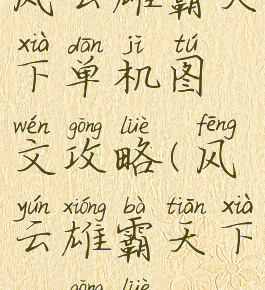 风云雄霸天
xià dān jī tú
下单机图
wén gōng lüè fēng
文攻略(风
yún xióng bà tiān xià
云雄霸天下
gōng lüè